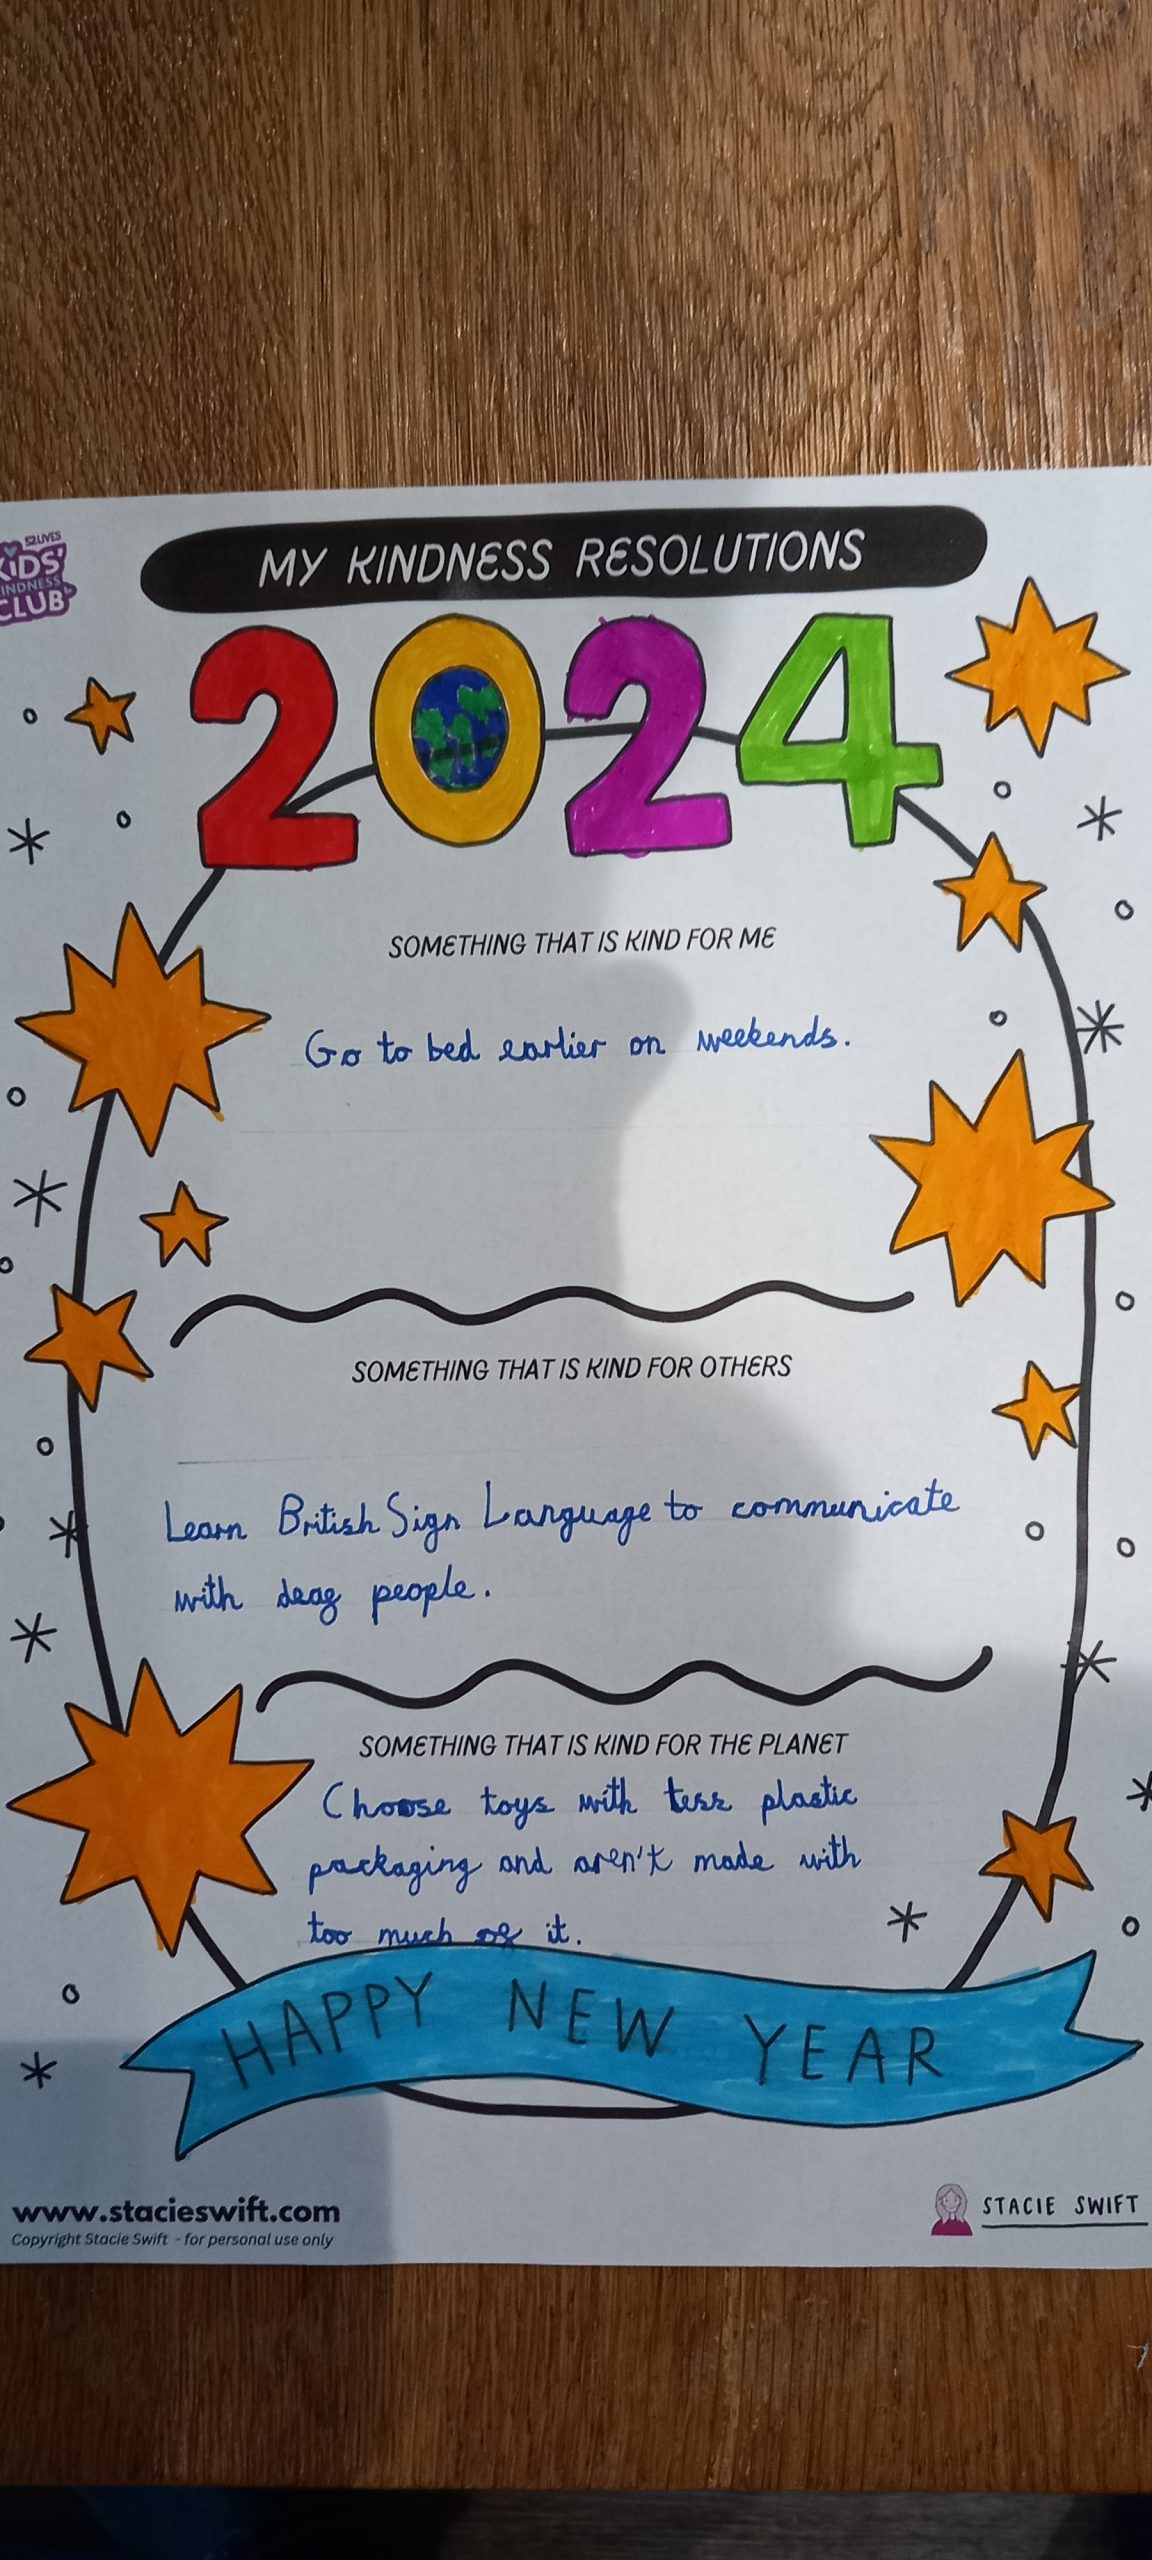 52 LIVES
KiDS'
KINDNESS
CLUB
MY KINDNESS RESOLUTIONS
2024
SOMETHING THAT IS KIND FOR ME
Go to bed earlier on weekends.
SOMETHING THAT IS KIND FOR OTHERS
Learn British Sign Language to communicate
with deaf people.
SOMETHING THAT IS KIND FOR THE PLANET
Choose toys with less plastic
packaging and aren't made with
too much of it.
HAPPY NEW YEAR
www.stacieswift.com
Copyright Stacie Swift - for personal use only
STACIE SWIFT